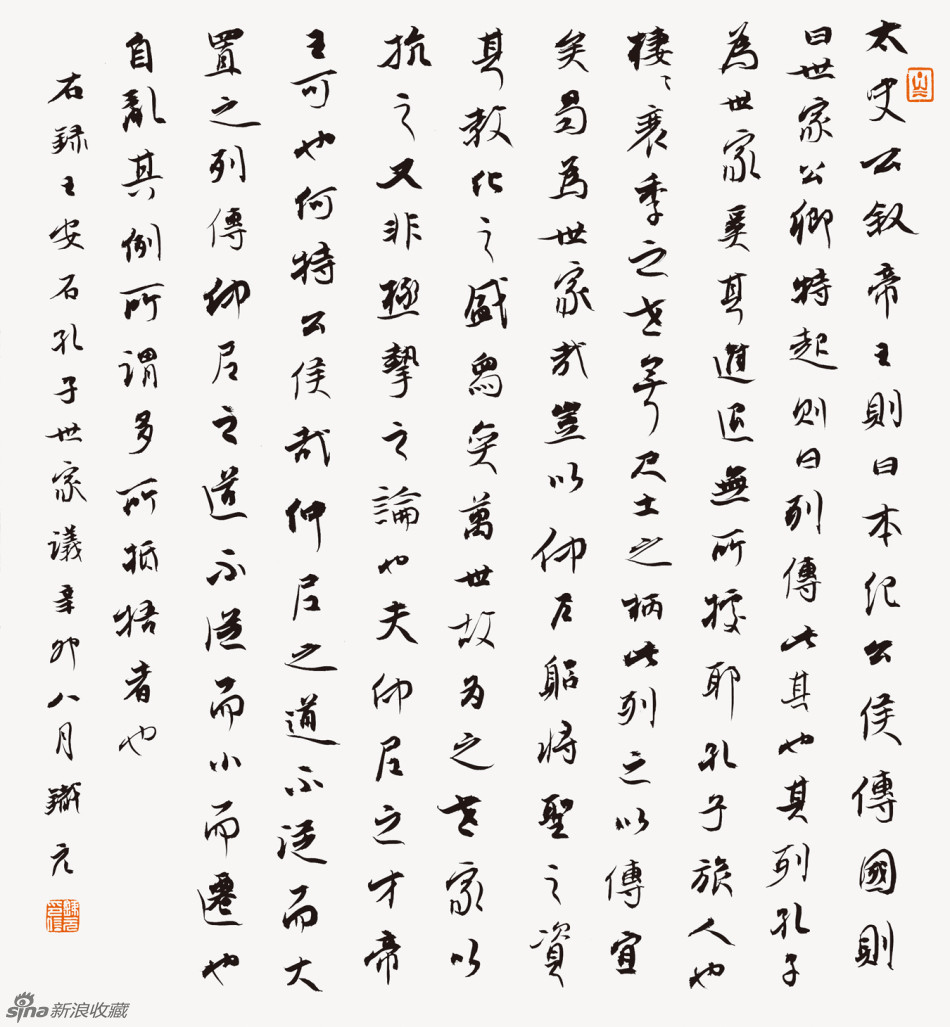 太史公叙帝王則曰本纪公侯傳國則
曰世家公卿特起则曰列傳此其也其列孔子
為世家奚其進退無所據耶孔子旅人也
棲〻衰季之世無尺土之柄此列之以傳宜
矣曷為世家哉豈以仲尼躬將聖之資
其教化之盛舄奕萬世故为之世家以
抗之又非極摯之論也夫仲尼之才帝
王可也何特公侯哉仲尼之道不從而大
置之列傳仲尼之道不從而小而遷也
自亂其例所謂多所抵牾者也
右録王安石孔子世家議辛卯八月鐵元
sina新浪收藏